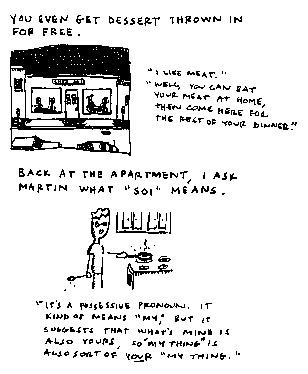 YOU EVEN GET DESSERT THROWN IN
FOR FREE.
"I LIKE MEAT."
"WELL, YOU CAN EAT
YOUR MEAT AT HOME,
THEN COME HERE FOR
THE REST OF YOUR DINNER."
BACK AT THE APARTMENT, I ASK
MARTIN WHAT "SOI" MEANS.
"IT'S A POSSESSIVE PRONOUN. IT
KIND OF MEANS "MY," BUT IT
SUGGESTS THAT WHAT'S MINE IS
ALSO YOURS, SO "MY THING" IS
ALSO SORT OF YOUR "MY THING."